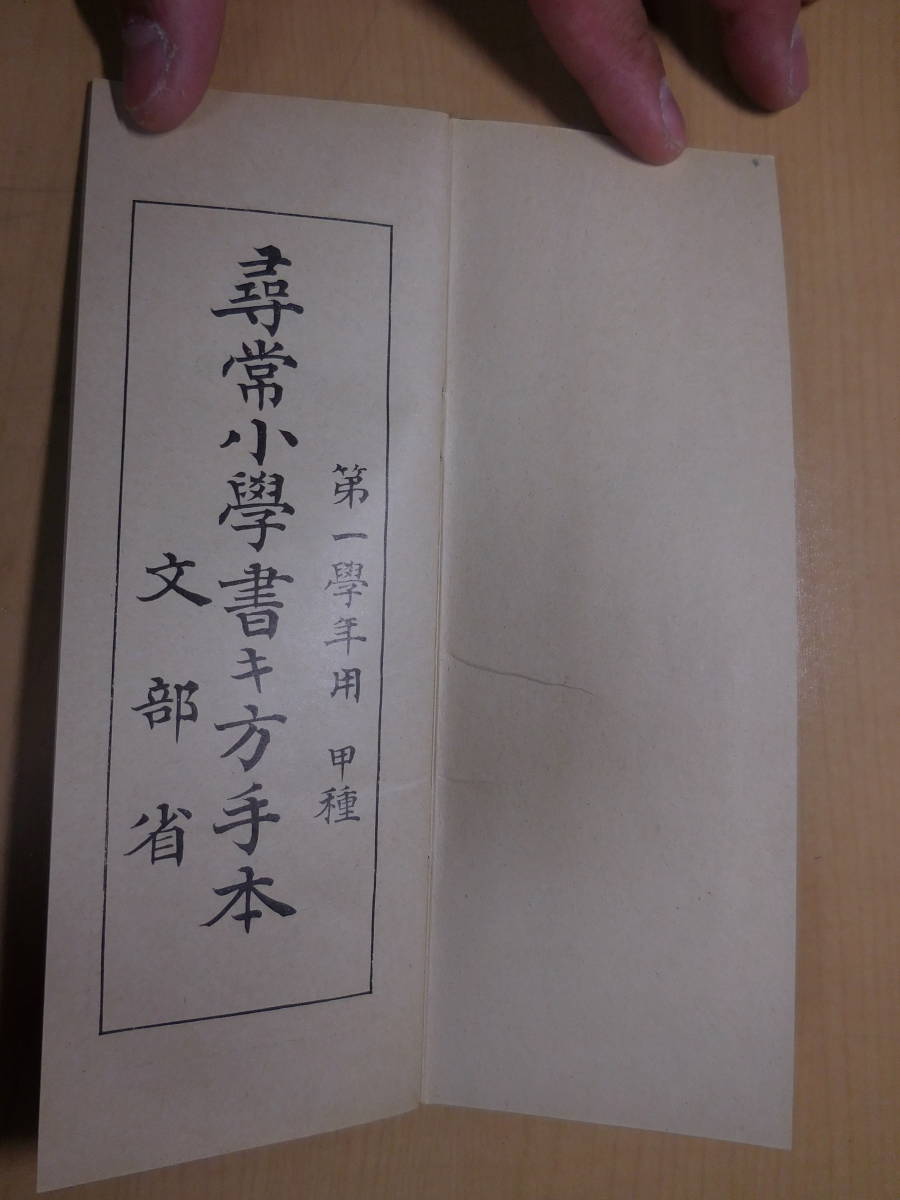 第一學年用　甲種
尋常小學書キ方手本
文部省